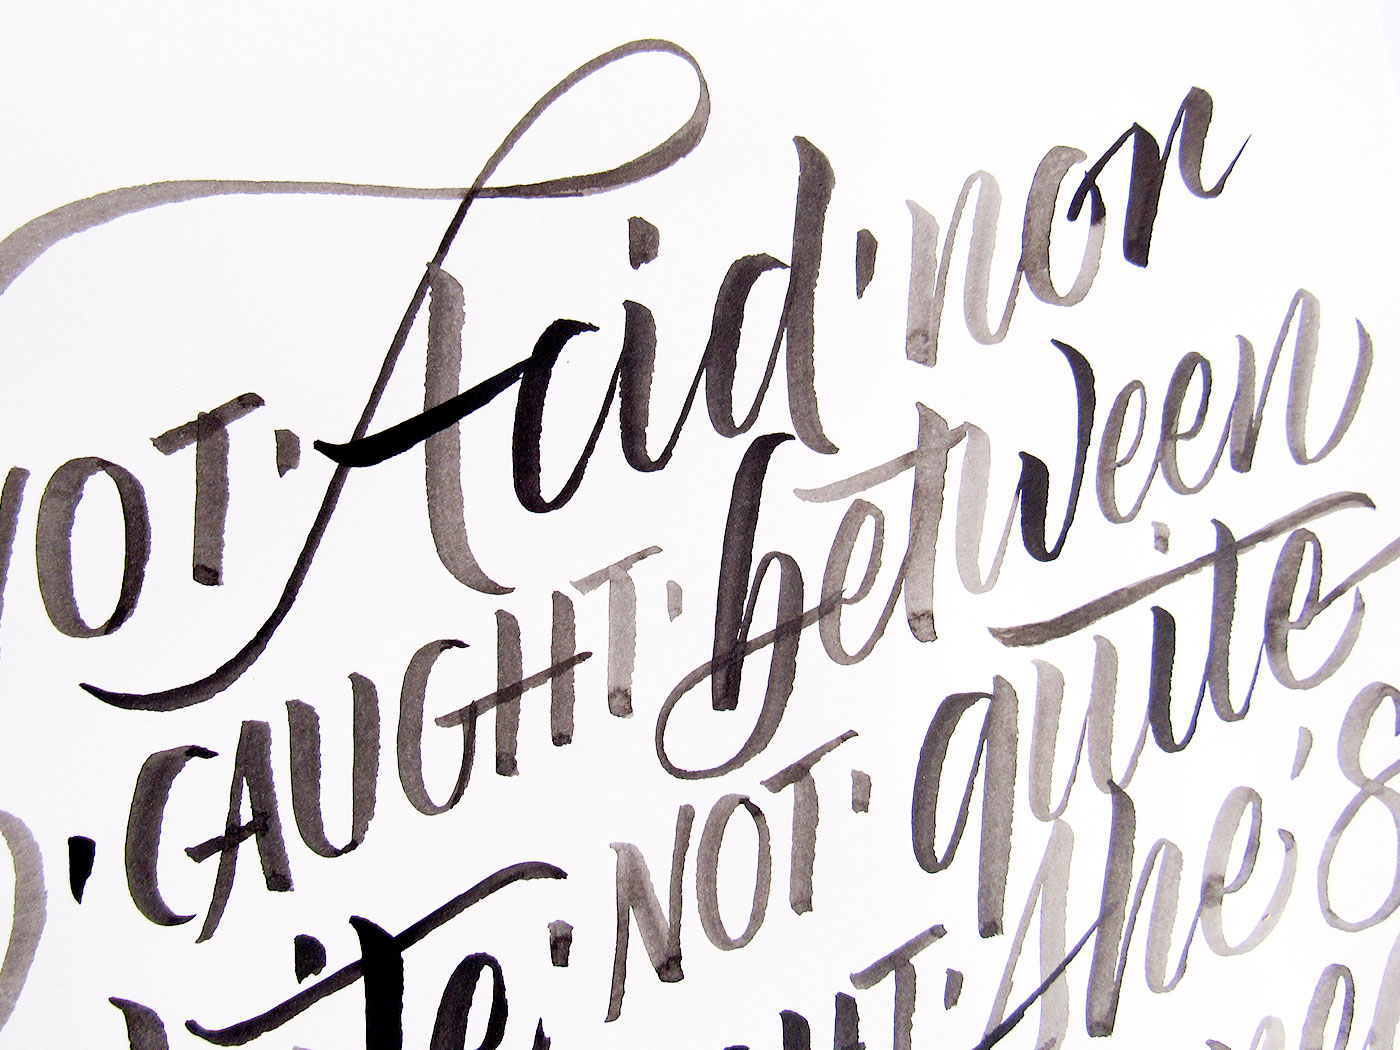 NOT · Acid · nor
· CAUGHT · between
ite · NOT · quite
HT · she's